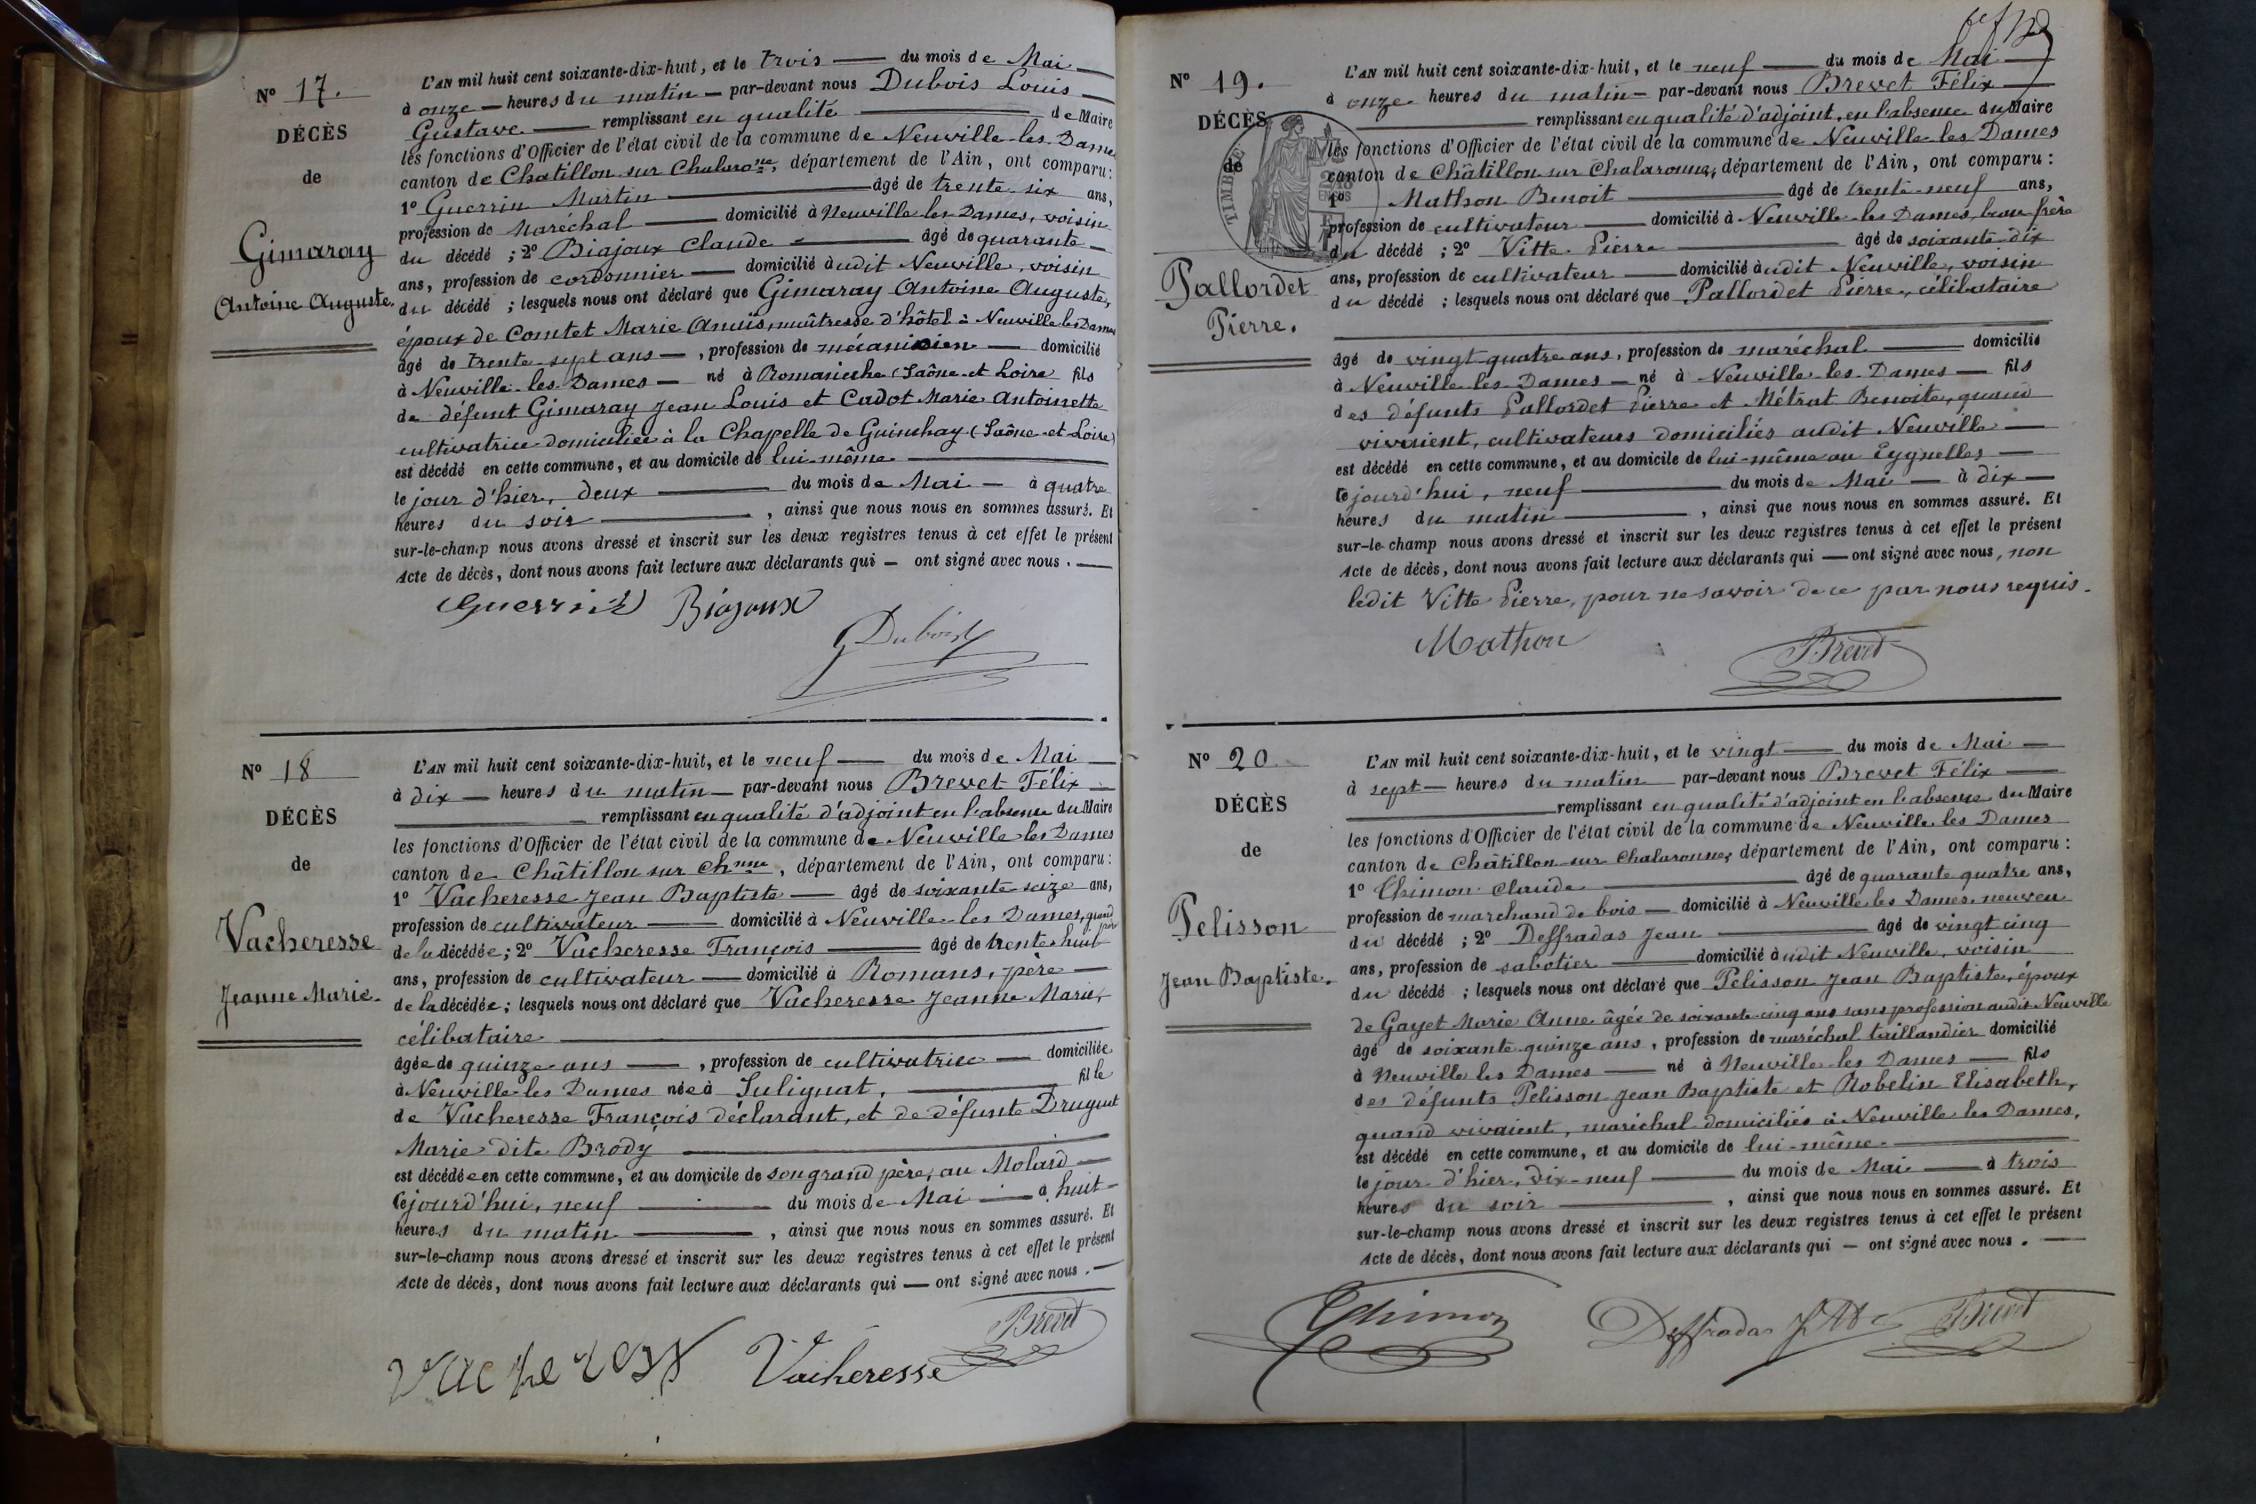 Nº 17.
DÉCÈS
de
Gimaray
Antoine Auguste
L'AN mil huit cent soixante-dix-huit, et le trois du mois de Mai
à onze heures du matin par-devant nous Dubois Louis
Gustave remplissant en qualité de Maire
les fonctions d'Officier de l'état civil de la commune de Neuville-les-Dames
canton de Chatillon sur Chalaronne, département de l'Ain, ont comparu :
1º Guerrin Martin âgé de trente six ans,
profession de Maréchal domicilié à Neuville les Dames, voisin
du décédé ; 2º Biajoux Claude âgé de quarante
ans, profession de cordonnier domicilié audit Neuville, voisin
du décédé ; lesquels nous ont déclaré que Gimaray Antoine Auguste,
époux de Comtet Marie Anaïs, maîtresse d'hôtel à Neuville les Dames
âgé de trente-sept ans, profession de mécanicien domicilié
à Neuville-les-Dames né à Romanèche (Saône-et-Loire fils
de défunt Gimaray Jean Louis et Cadot Marie Antoinette
cultivatrice domiciliée à la Chapelle de Guinchay (Saône-et-Loire)
est décédé en cette commune, et au domicile de lui-même
le jour d'hier, deux du mois de Mai à quatre
heures du soir, ainsi que nous nous en sommes assuré. Et
sur-le-champ nous avons dressé et inscrit sur les deux registres tenus à cet effet le présent
Acte de décès, dont nous avons fait lecture aux déclarants qui — ont signé avec nous.
Guerrin Biajoux
Dubois
Nº 18
DÉCÈS
de
Vacheresse
Jeanne Marie.
L'AN mil huit cent soixante-dix-huit, et le neuf du mois de Mai
à dix heures du matin par-devant nous Brevet Félix
remplissant en qualité d'adjoint en l'absence du Maire
les fonctions d'Officier de l'état civil de la commune de Neuville les Dames
canton de Châtillon sur Chnne, département de l'Ain, ont comparu :
1º Vacheresse Jean Baptiste âgé de soixante seize ans,
profession de cultivateur domicilié à Neuville-les-Dames, grand père
de la décédée ; 2º Vacheresse François âgé de trente huit
ans, profession de cultivateur domicilié à Romans, père
de la décédée ; lesquels nous ont déclaré que Vacheresse Jeanne Marie,
célibataire
âgée de quinze ans, profession de cultivatrice domiciliée
à Neuville-les Dames née à Sulignat, fille
de Vacheresse François déclarant, et de défunte Druguet
Marie dite Brody
est décédée en cette commune, et au domicile de son grand père, au Molard
Cejourd'hui, neuf du mois de Mai à huit
heures du matin, ainsi que nous nous en sommes assuré. Et
sur-le-champ nous avons dressé et inscrit sur les deux registres tenus à cet effet le présent
Acte de décès, dont nous avons fait lecture aux déclarants qui — ont signé avec nous.
Brevet
Vacheress Vacheresse
Nº 19.
DÉCÈS
de
TIMBRE
Pallordet
Pierre.
L'AN mil huit cent soixante-dix-huit, et le neuf du mois de Mai
à onze heures du matin par-devant nous Brevet Félix
remplissant en qualité d'adjoint, en l'absence du Maire
les fonctions d'Officier de l'état civil de la commune de Neuville-les Dames
canton de Châtillon sur Chalaronne, département de l'Ain, ont comparu :
1º Mathon Benoit âgé de trente-neuf ans,
profession de cultivateur domicilié à Neuville-les Dames, beau frère
du décédé ; 2º Vitte Pierre âgé de soixante-dix
ans, profession de cultivateur domicilié audit Neuville, voisin
du décédé ; lesquels nous ont déclaré que Pallordet Pierre, célibataire
âgé de vingt-quatre ans, profession de maréchal domicilié
à Neuville-les-Dames né à Neuville-les-Dames fils
des défunts Pallordet Pierre et Métrat Benoite, quand
vivaient, cultivateurs domiciliés audit Neuville
est décédé en cette commune, et au domicile de lui-même au
cejourd'hui, neuf du mois de Mai à dix
heures du matin, ainsi que nous nous en sommes assuré. Et
sur-le-champ nous avons dressé et inscrit sur les deux registres tenus à cet effet le présent
Acte de décès, dont nous avons fait lecture aux déclarants qui — ont signé avec nous, non
ledit Vitte Pierre, pour ne savoir de ce par nous requis.
Mathon Brevet
Nº 20
DÉCÈS
de
Pelisson
Jean Baptiste.
L'AN mil huit cent soixante-dix-huit, et le vingt du mois de Mai
à sept heures du matin par-devant nous Brevet Félix
remplissant en qualité d'adjoint en l'absence du Maire
les fonctions d'Officier de l'état civil de la commune de Neuville les Dames
canton de Châtillon-sur Chalaronne, département de l'Ain, ont comparu :
1º Thimon Claude âgé de quarante quatre ans,
profession de marchand de bois domicilié à Neuville les Dames, neuveu
du décédé ; 2º Deffradas Jean âgé de vingt cinq
ans, profession de sabotier domicilié audit Neuville, voisin
du décédé ; lesquels nous ont déclaré que Pelisson Jean Baptiste, époux
de Gayet Marie Anne âgée de soixante-cinq ans sans profession audit Neuville
âgé de soixante quinze ans, profession de maréchal taillandier domicilié
à Neuville les Dames né à Neuville-les Dames fils
des défunts Pelisson Jean Baptiste et Robelin Elisabeth,
quand vivaient, maréchal domiciliés à Neuville les Dames,
est décédé en cette commune, et au domicile de lui-même.
le jour d'hier, dix-neuf du mois de Mai à trois
heures du soir, ainsi que nous nous en sommes assuré. Et
sur-le-champ nous avons dressé et inscrit sur les deux registres tenus à cet effet le présent
Acte de décès, dont nous avons fait lecture aux déclarants qui — ont signé avec nous.
Thimon Deffradas Brevet